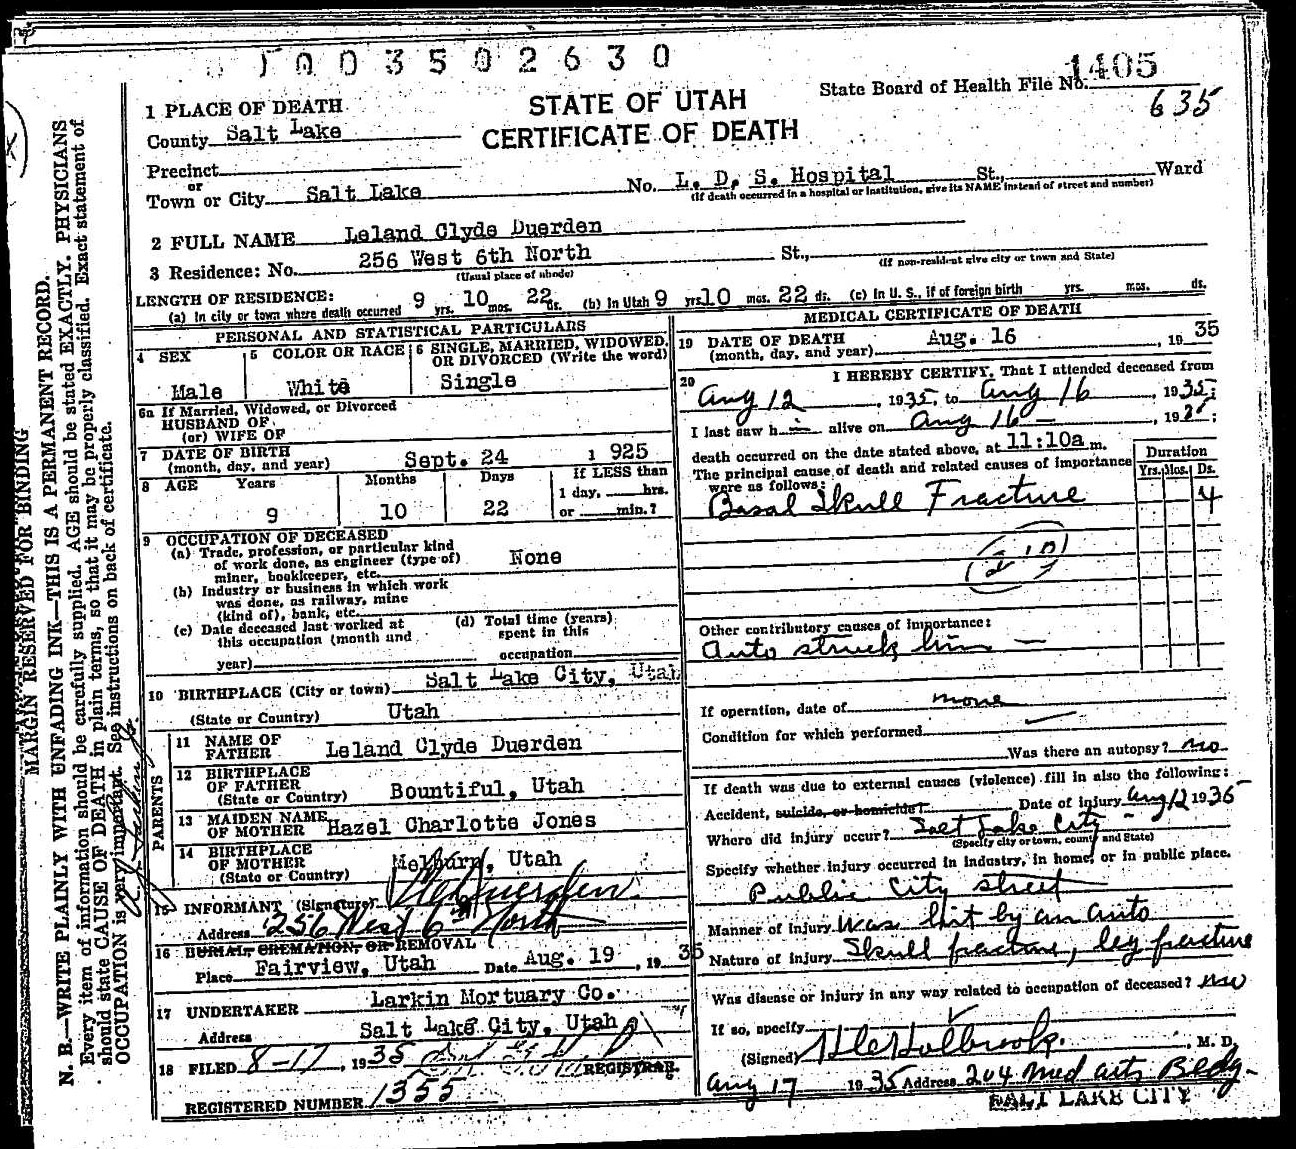 1003502630
State Board of Health File No. 1405
635
STATE OF UTAH
CERTIFICATE OF DEATH
1 PLACE OF DEATH
County Salt Lake
Precinct
or
Town or City Salt Lake No. L. D. S. Hospital St., Ward
(If death occurred in a hospital or institution, give its NAME instead of street and number)
2 FULL NAME Leland Clyde Duerden
3 Residence: No. 256 West 6th North St.,
(Usual place of abode) (If non-resident give city or town and State)
LENGTH OF RESIDENCE:
(a) In city or town where death occurred 9 yrs. 10 mos. 22 ds. (b) In Utah 9 yrs 10 mos. 22 ds. (c) In U. S., if of foreign birth yrs. mos. ds.
PERSONAL AND STATISTICAL PARTICULARS
4 SEX
Male
5 COLOR OR RACE
White
6 SINGLE, MARRIED, WIDOWED, OR DIVORCED (Write the word)
Single
6a If Married, Widowed, or Divorced
HUSBAND OF
(or) WIFE OF
7 DATE OF BIRTH
(month, day, and year) Sept. 24 1925
8 AGE Years Months Days If LESS than
1 day, hrs.
9 10 22 or min.?
9 OCCUPATION OF DECEASED
(a) Trade, profession, or particular kind
of work done, as engineer (type of)
miner, bookkeeper, etc. None
(b) Industry or business in which work
was done, as railway, mine
(kind of), bank, etc.
(c) Date deceased last worked at
this occupation (month and
year)
(d) Total time (years)
spent in this
occupation
10 BIRTHPLACE (City or town) Salt Lake City, Utah
(State or Country) Utah
PARENTS
11 NAME OF
FATHER Leland Clyde Duerden
12 BIRTHPLACE
OF FATHER
(State or Country) Bountiful, Utah
13 MAIDEN NAME
OF MOTHER Hazel Charlotte Jones
14 BIRTHPLACE
OF MOTHER
(State or Country) Melburn, Utah
15 INFORMANT (Signature) Duerden
Address 256 West 6th North
16 BURIAL, CREMATION, OR REMOVAL
Place Fairview, Utah Date Aug. 19, 1935
17 UNDERTAKER Larkin Mortuary Co.
Address Salt Lake City, Utah
18 FILED 8-17, 1935
REGISTRAR.
REGISTERED NUMBER 1355
MEDICAL CERTIFICATE OF DEATH
19 DATE OF DEATH
(month, day, and year) Aug. 16, 1935
20 I HEREBY CERTIFY, That I attended deceased from
Aug 12, 1935, to Aug 16, 1935;
I last saw h alive on Aug 16, 1935;
death occurred on the date stated above, at 11:10a m.
The principal cause of death and related causes of importance
were as follows:
Duration
Yrs. Mos. Ds.
Basal Skull Fracture 4
Other contributory causes of importance:
Auto struck him
If operation, date of none
Condition for which performed
Was there an autopsy? no
If death was due to external causes (violence) fill in also the following:
Accident, suicide, or homicide? Date of injury Aug 12 1935
Where did injury occur? Salt Lake City
(Specify city or town, county and State)
Specify whether injury occurred in industry, in home, or in public place.
Public City street
Manner of injury Was hit by an auto
Nature of injury Skull fracture, leg fracture
Was disease or injury in any way related to occupation of deceased? no
If so, specify
(Signed) Holbrook, M. D.
Aug 17 1935 Address 204 Med Arts Bldg.
SALT LAKE CITY
MARGIN RESERVED FOR BINDING
N. B.—WRITE PLAINLY WITH UNFADING INK—THIS IS A PERMANENT RECORD.
Every item of information should be carefully supplied. AGE should be stated EXACTLY. PHYSICIANS
should state CAUSE OF DEATH in plain terms, so that it may be properly classified. Exact statement of
OCCUPATION is very important. See instructions on back of certificate.